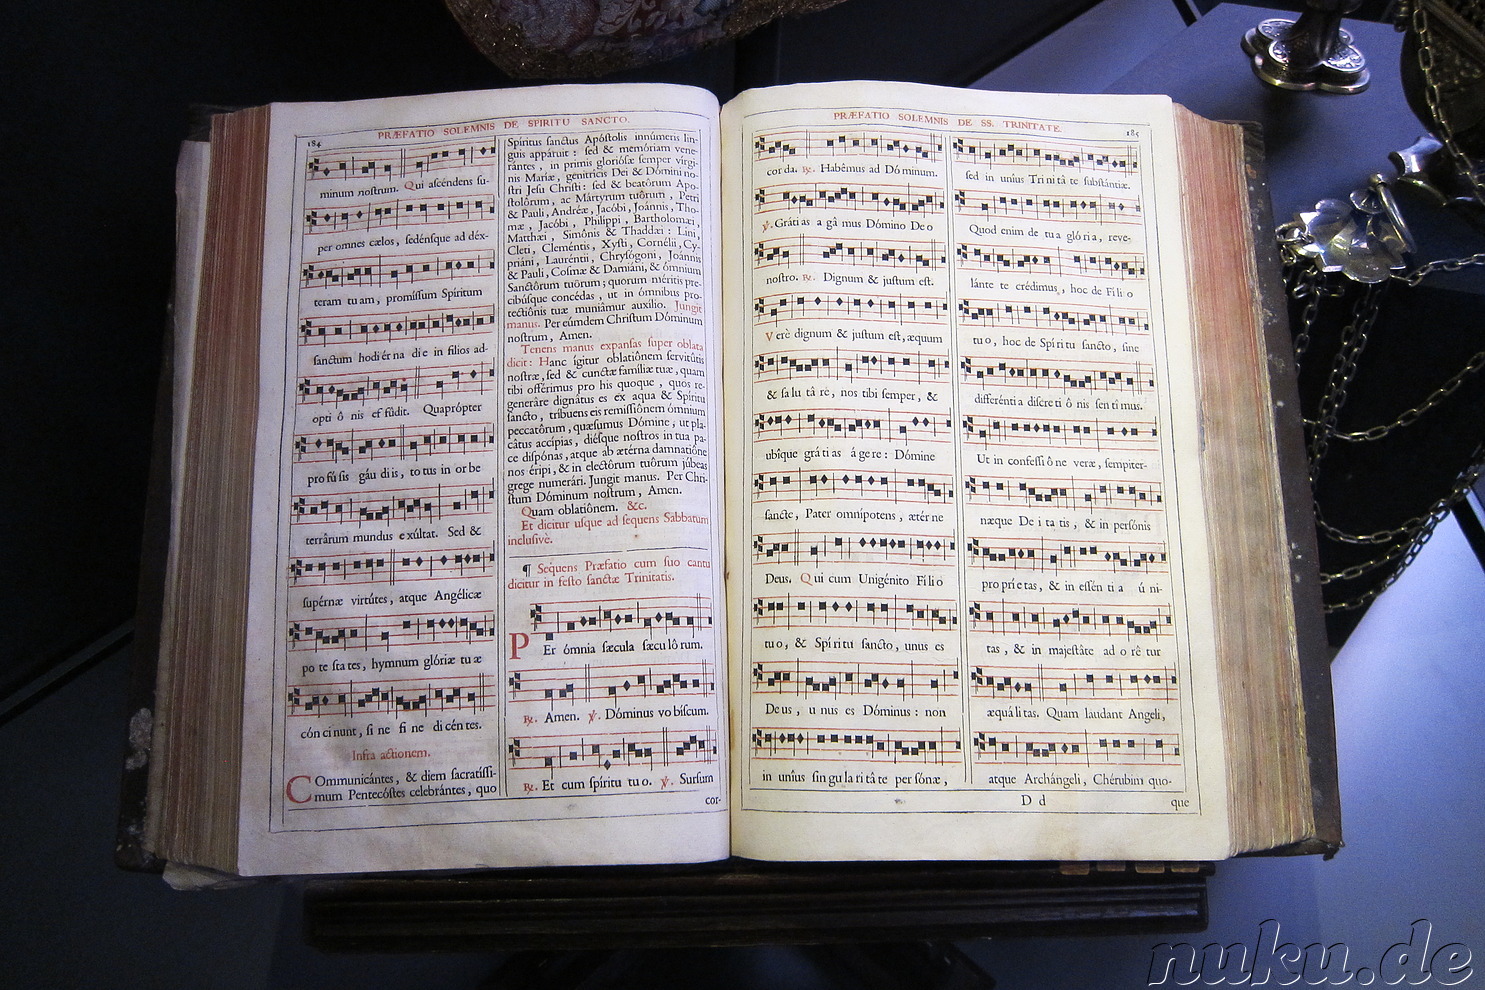 PRÆFATIO SOLEMNIS DE SPIRITU SANCTO.
184
minum nostrum. Qui ascéndens su-
per omnes cælos, sedénsque ad déx-
teram tuam, promíssum Spíritum
sanctum hodiérna die in filios ad-
opti ô nis effûdit. Quaprópter
profúsis gáudiis, totus in orbe
terrârum mundus exúltat. Sed &
supérnæ virtútes, atque Angélicæ
po te states, hymnum glóriæ tuæ
cóncinunt, sine fine dicéntes.
Infra actionem.
COmmunicántes, & diem sacratíssi-
mum Pentecóstes celebrántes, quo
Spíritus sanctus Apóstolis innúmeris lin-
guis appáruit: sed & memóriam vene-
rántes, in primis gloriósæ semper vírgi-
nis Maríæ, genitrícis Dei & Dómini no-
stri Jesu Christi: sed & beatôrum Apo-
stolôrum, ac Mártyrum tuôrum, Petri
& Pauli, Andréæ, Jacóbi, Joánnis, Tho-
mæ, Jacóbi, Philíppi, Bartholomæi,
Matthæi, Simônis & Thaddæi: Lini,
Cleti, Cleméntis, Xysti, Cornélii, Cy-
priáni, Lauréntii, Chrysógoni, Joánnis
& Pauli, Cosmæ & Damiáni, & ómnium
Sanctôrum tuôrum; quorum méritis pre-
cibúsque concédas, ut in ómnibus pro-
tectiônis tuæ muniâmur auxílio. Jungit
manus. Per eúmdem Christum Dóminum
nostrum, Amen.
Tenens manus expansas super oblata
dicit: Hanc ígitur oblatiônem servitûtis
nostræ, sed & cunctæ famíliæ tuæ, quam
tibi offérimus pro his quoque, quos re-
generâre dignâtus es ex aqua & Spíritu
sancto, tríbuens eis remissiônem ómnium
peccatôrum, quæsumus Dómine, ut pla-
câtus accípias, diésque nostros in tua pa-
ce dispónas, atque ab ætérna damnatiône
nos éripi, & in electôrum tuôrum júbeas
grege numerári. Jungit manus. Per Chri-
stum Dóminum nostrum, Amen.
Quam oblatiônem. &c.
Et dicitur usque ad sequens Sabbatum
inclusivè.
¶ Sequens Præfatio cum suo cantu
dicitur in festo sanctæ Trinitatis.
PEr ómnia sæcula sæculôrum.
℟. Amen. ℣. Dóminus vobíscum.
℟. Et cum spíritu tuo. ℣. Sursum
cor-
PRÆFATIO SOLEMNIS DE SS. TRINITATE.
185
corda. ℟. Habêmus ad Dóminum.
℣. Grátias agâmus Dómino Deo
nostro. ℟. Dignum & justum est.
Verè dignum & justum est, æquum
& salutâre, nos tibi semper, &
ubîque grátias ágere: Dómine
sancte, Pater omnípotens, ætérne
Deus. Qui cum Unigénito Fílio
tuo, & Spíritu sancto, unus es
Deus, unus es Dóminus: non
in uníus singularitâte persónæ,
sed in uníus Trinitâte substántiæ.
Quod enim de tua glória, reve-
lánte te crédimus, hoc de Fílio
tuo, hoc de Spíritu sancto, sine
differéntia discretiônis sentímus.
Ut in confessiône veræ, sempiter-
næque Deitatis, & in persónis
proprietas, & in esséntia úni-
tas, & in majestâte adorêtur
æquálitas. Quam laudant Angeli,
atque Archángeli, Chérubim quo-
D d
que
nuku.de